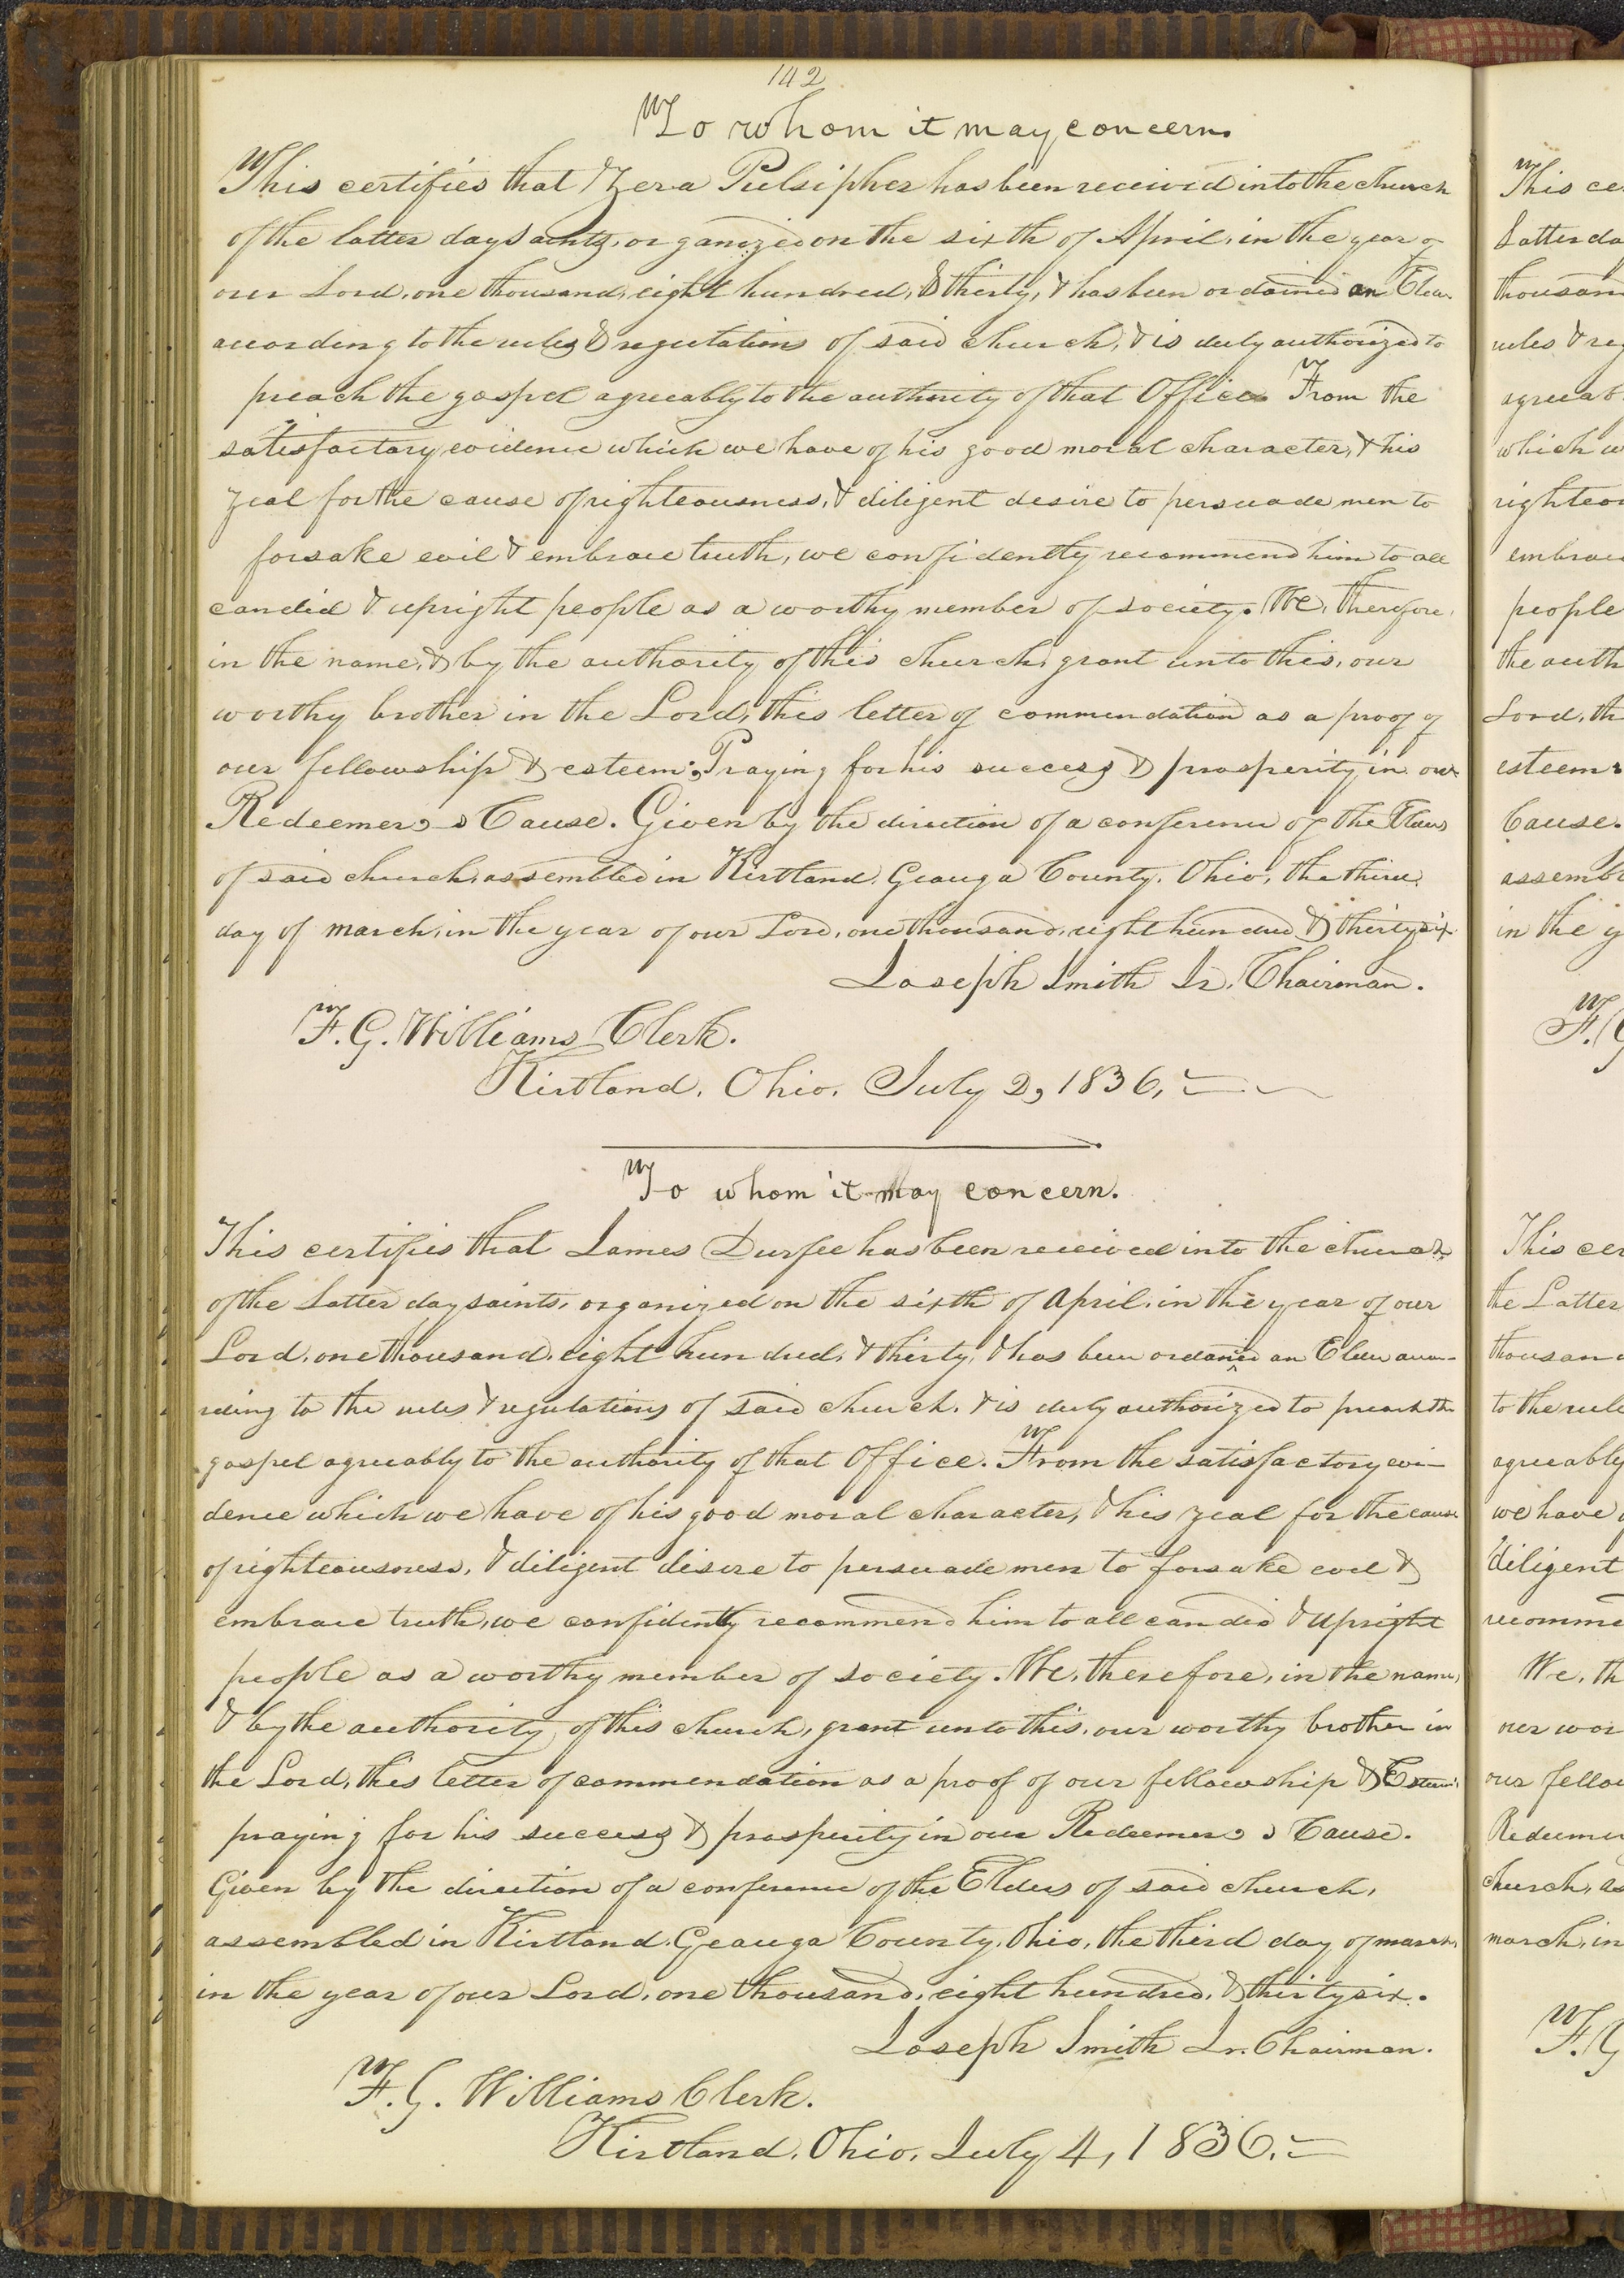 142
To whom it may concern.
This certifies that Zera Pulsipher has been received into the church
of the latter day saints, organized on the sixth of April, in the year of
our Lord, one thousand, eight hundred, & thirty, & has been ordained an Elder
according to the rules & regulations of said church, & is duly authorized to
preach the gospel agreeably to the authority of that Office. From the
satisfactory evidence which we have of his good moral character, & his
zeal for the cause of righteousness, & diligent desire to persuade men to
forsake evil & embrace truth, we confidently recommend him to all
candid & upright people as a worthy member of society. We, therefore,
in the name, & by the authority of this church, grant unto this, our
worthy brother in the Lord, this letter of commendation as a proof of
our fellowship & esteem: Praying for his success & prosperity in our
Redeemer's Cause. Given by the direction of a conference of the Elders
of said church, assembled in Kirtland, Geauga County, Ohio, the third
day of march, in the year of our Lord, one thousand, eight hundred & thirty six.
Joseph Smith Jr. Chairman.
F. G. Williams Clerk.
Kirtland, Ohio, July 2, 1836.
To whom it may concern.
This certifies that James Durfee has been received into the church
of the Latter day saints, organized on the sixth of April, in the year of our
Lord, one thousand, eight hundred, & thirty, & has been ordained an Elder accor-
rding to the rules & regulations of said church, & is duly authorized to preach the
gospel agreeably to the authority of that Office. From the satisfactory evi-
dence which we have of his good moral character, & his zeal for the cause
of righteousness, & diligent desire to persuade men to forsake evil &
embrace truth, we confidently recommend him to all candid & upright
people as a worthy member of society. We, therefore, in the name,
& by the authority of this church, grant unto this, our worthy brother in
the Lord, this letter of commendation as a proof of our fellowship & Esteem:
praying for his success & prosperity in our Redeemer's Cause.
Given by the direction of a conference of the Elders of said church,
assembled in Kirtland, Geauga County, Ohio, the third day of march,
in the year of our Lord, one thousand, eight hundred, & thirty six.
Joseph Smith Jr. Chairman.
F. G. Williams Clerk.
Kirtland, Ohio, July 4, 1836.
This ce
Latter da
thousan
rules & reg
agreeab
which w
righteou
embrac
people
the auth
Lord, th
esteem:
Cause.
assembl
in the y
F. G
This cer
the Latter
thousand
to the rule
agreeably
we have
diligent
recomme
We, th
our wor
our fellow
Redeemer
church, as
march, in
F. G